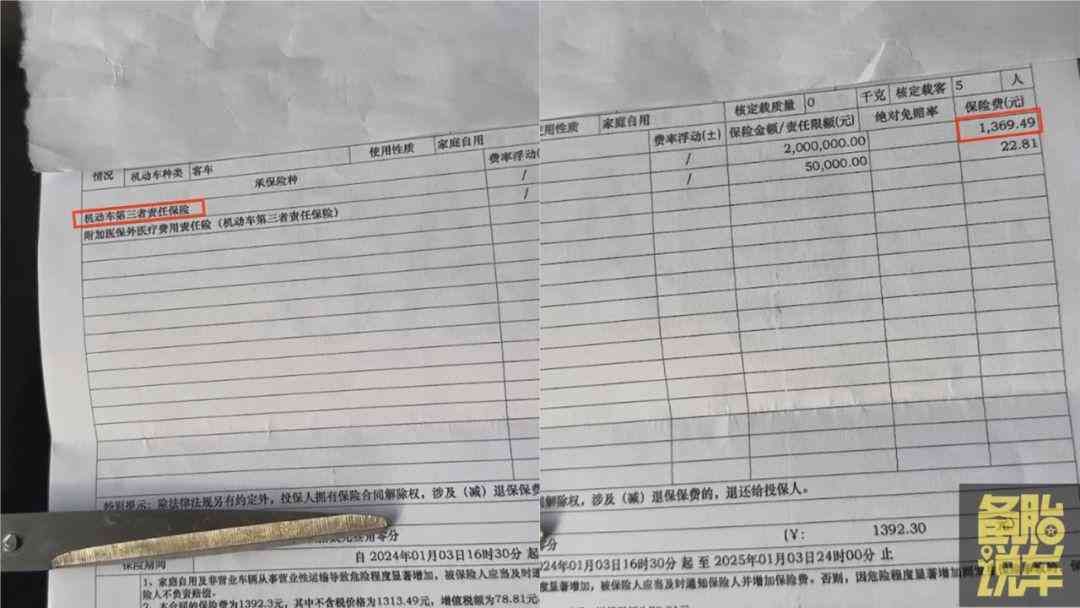 情况 机动车种类 客车 使用性质 家庭自用
承保险种 费率浮动(
机动车第三者责任保险 /
附加医保外医疗费用责任险（机动车第三者责任保险） /
特别提示：除法律法规另有约定外，投保人拥有保险合同解除权，涉及（减）退保保费
保险期间 自 2024年01月03日16时30分 起
1、家庭自用及非营业车辆从事营业性运输导致危险程度显著增加，被保险人应当及时
险人不负责赔偿。
2、本合同的保险费为1392.3元，其中不含税价格为1313.49元，增值税额为78.81元，
核定载质量 0 千克 核定载客 5 人
使用性质 家庭自用
费率浮动(±) 保险金额/责任限额(元) 绝对免赔率 保险费(元)
/ 2,000,000.00 1,369.49
/ 50,000.00 22.81
同解除权，涉及（减）退保保费的，退还给投保人。
(¥: 1392.30
03日16时30分 起 至 2025年01月03日24时00分 止
度显著增加，被保险人应当及时通知保险人并增加保险费。否则，因危险程度显著增加
备胎说车